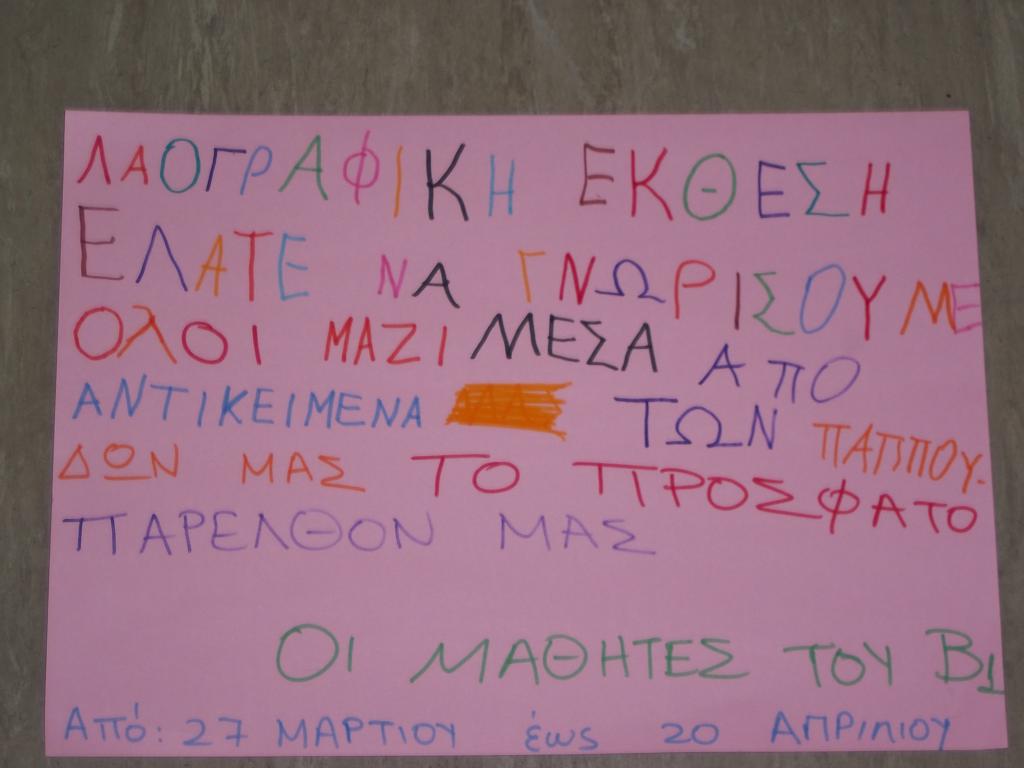 ΛΑΟΓΡΑΦΙΚΗ ΕΚΘΕΣΗ
ΕΛΑΤΕ ΝΑ ΓΝΩΡΙΣΟΥΜΕ
ΟλΟΙ ΜΑΖΙ ΜΕΣΑ ΑΠΟ
ΑΝΤΙΚΕΙΜΕΝΑ ΤΩΝ ΠΑΠΠΟΥ-
ΔΩΝ ΜΑΣ ΤΟ ΠΡΟΣΦΑΤΟ
ΠΑΡΕΛΘΟΝ ΜΑΣ
ΟΙ ΜΑΘΗΤΕΣ ΤΟΥ Β1
Από: 27 ΜΑΡΤΙΟΥ έως 20 ΑΠΡΙΛΙΟΥ